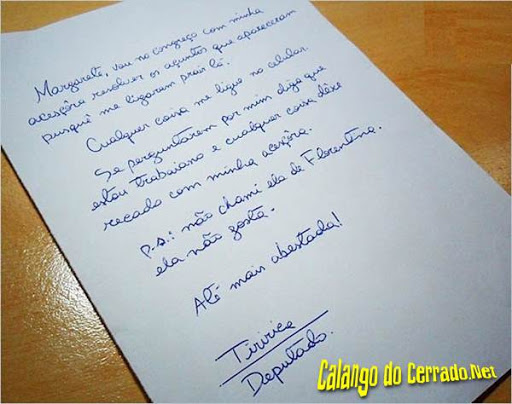 Margarete, vou no congreço com minha
acesçôra resolver os açuntos que apareceram
purquê me ligaram praí lá.
Cualquer coisa me ligue no celular.
Se perguntarem por mim diga que
estou trabaiano e cualquer coisa dêxe
recado com minha acesçôra.
P.S.: não chami ela de Florentina.
ela não gosta.
Até mais abestada!
Tiririca
Deputado.
Calango do Cerrado.Net